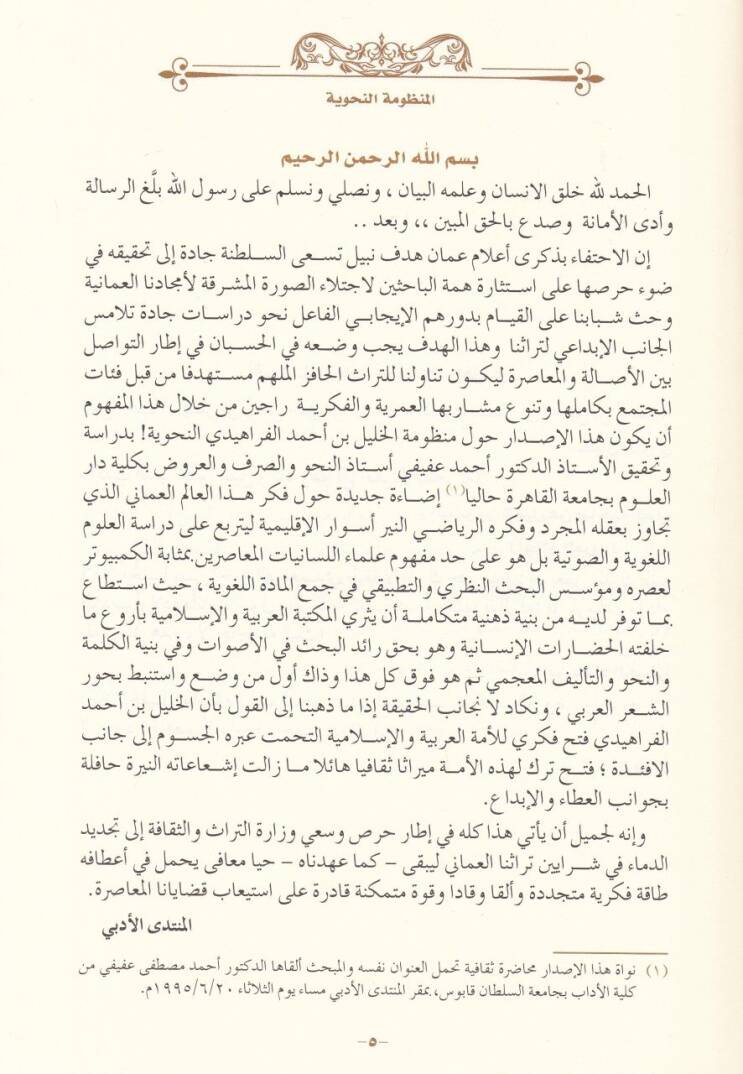 المنظومة النحوية
بسم الله الرحمن الرحيم
الحمد لله خلق الانسان وعلمه البيان ، ونصلي ونسلم على رسول الله بلَّغ الرسالة
وأدى الأمانة وصدع بالحق المبين ،، وبعد ..
إن الاحتفاء بذكرى أعلام عمان هدف نبيل تسعى السلطنة جادة إلى تحقيقه في
ضوء حرصها على استثارة همة الباحثين لاجتلاء الصورة المشرقة لأمجادنا العمانية
وحث شبابنا على القيام بدورهم الإيجابي الفاعل نحو دراسات جادة تلامس
الجانب الإبداعي لتراثنا وهذا الهدف يجب وضعه في الحسبان في إطار التواصل
بين الأصالة والمعاصرة ليكون تناولنا للتراث الحافز الملهم مستهدفا من قبل فئات
المجتمع بكاملها وتنوع مشاربها العمرية والفكرية راجين من خلال هذا المفهوم
أن يكون هذا الإصدار حول منظومة الخليل بن أحمد الفراهيدي النحوية! بدراسة
وتحقيق الأستاذ الدكتور أحمد عفيفي أستاذ النحو والصرف والعروض بكلية دار
العلوم بجامعة القاهرة حاليا(١) إضاءة جديدة حول فكر هذا العالم العماني الذي
تجاوز بعقله المجرد وفكره الرياضي النير أسوار الإقليمية ليتربع على دراسة العلوم
اللغوية والصوتية بل هو على حد مفهوم علماء اللسانيات المعاصرين بمثابة الكمبيوتر
لعصره ومؤسس البحث النظري والتطبيقي في جمع المادة اللغوية ، حيث استطاع
بما توفر لديه من بنية ذهنية متكاملة أن يثري المكتبة العربية والإسلامية بأروع ما
خلفته الحضارات الإنسانية وهو بحق رائد البحث في الأصوات وفي بنية الكلمة
والنحو والتأليف المعجمي ثم هو فوق كل هذا وذاك أول من وضع واستنبط بحور
الشعر العربي ، ونكاد لا نجانب الحقيقة إذا ما ذهبنا إلى القول بأن الخليل بن أحمد
الفراهيدي فتح فكري للأمة العربية والإسلامية التحمت عبره الجسوم إلى جانب
الافئدة ؛ فتح ترك لهذه الأمة ميراثا ثقافيا هائلا ما زالت إشعاعاته النيرة حافلة
بجوانب العطاء والإبداع.
وإنه لجميل أن يأتي هذا كله في إطار حرص وسعي وزارة التراث والثقافة إلى تجديد
الدماء في شرايين تراثنا العماني ليبقى – كما عهدناه – حيا معافى يحمل في أعطافه
طاقة فكرية متجددة وألقا وقادا وقوة متمكنة قادرة على استيعاب قضايانا المعاصرة.
المنتدى الأدبي
(١) نواة هذا الإصدار محاضرة ثقافية تحمل العنوان نفسه والمبحث ألقاها الدكتور أحمد مصطفى عفيفي من
كلية الأداب بجامعة السلطان قابوس، بمقر المنتدى الأدبي مساء يوم الثلاثاء ١٩٩٥/٦/٢٠م.
–٥–